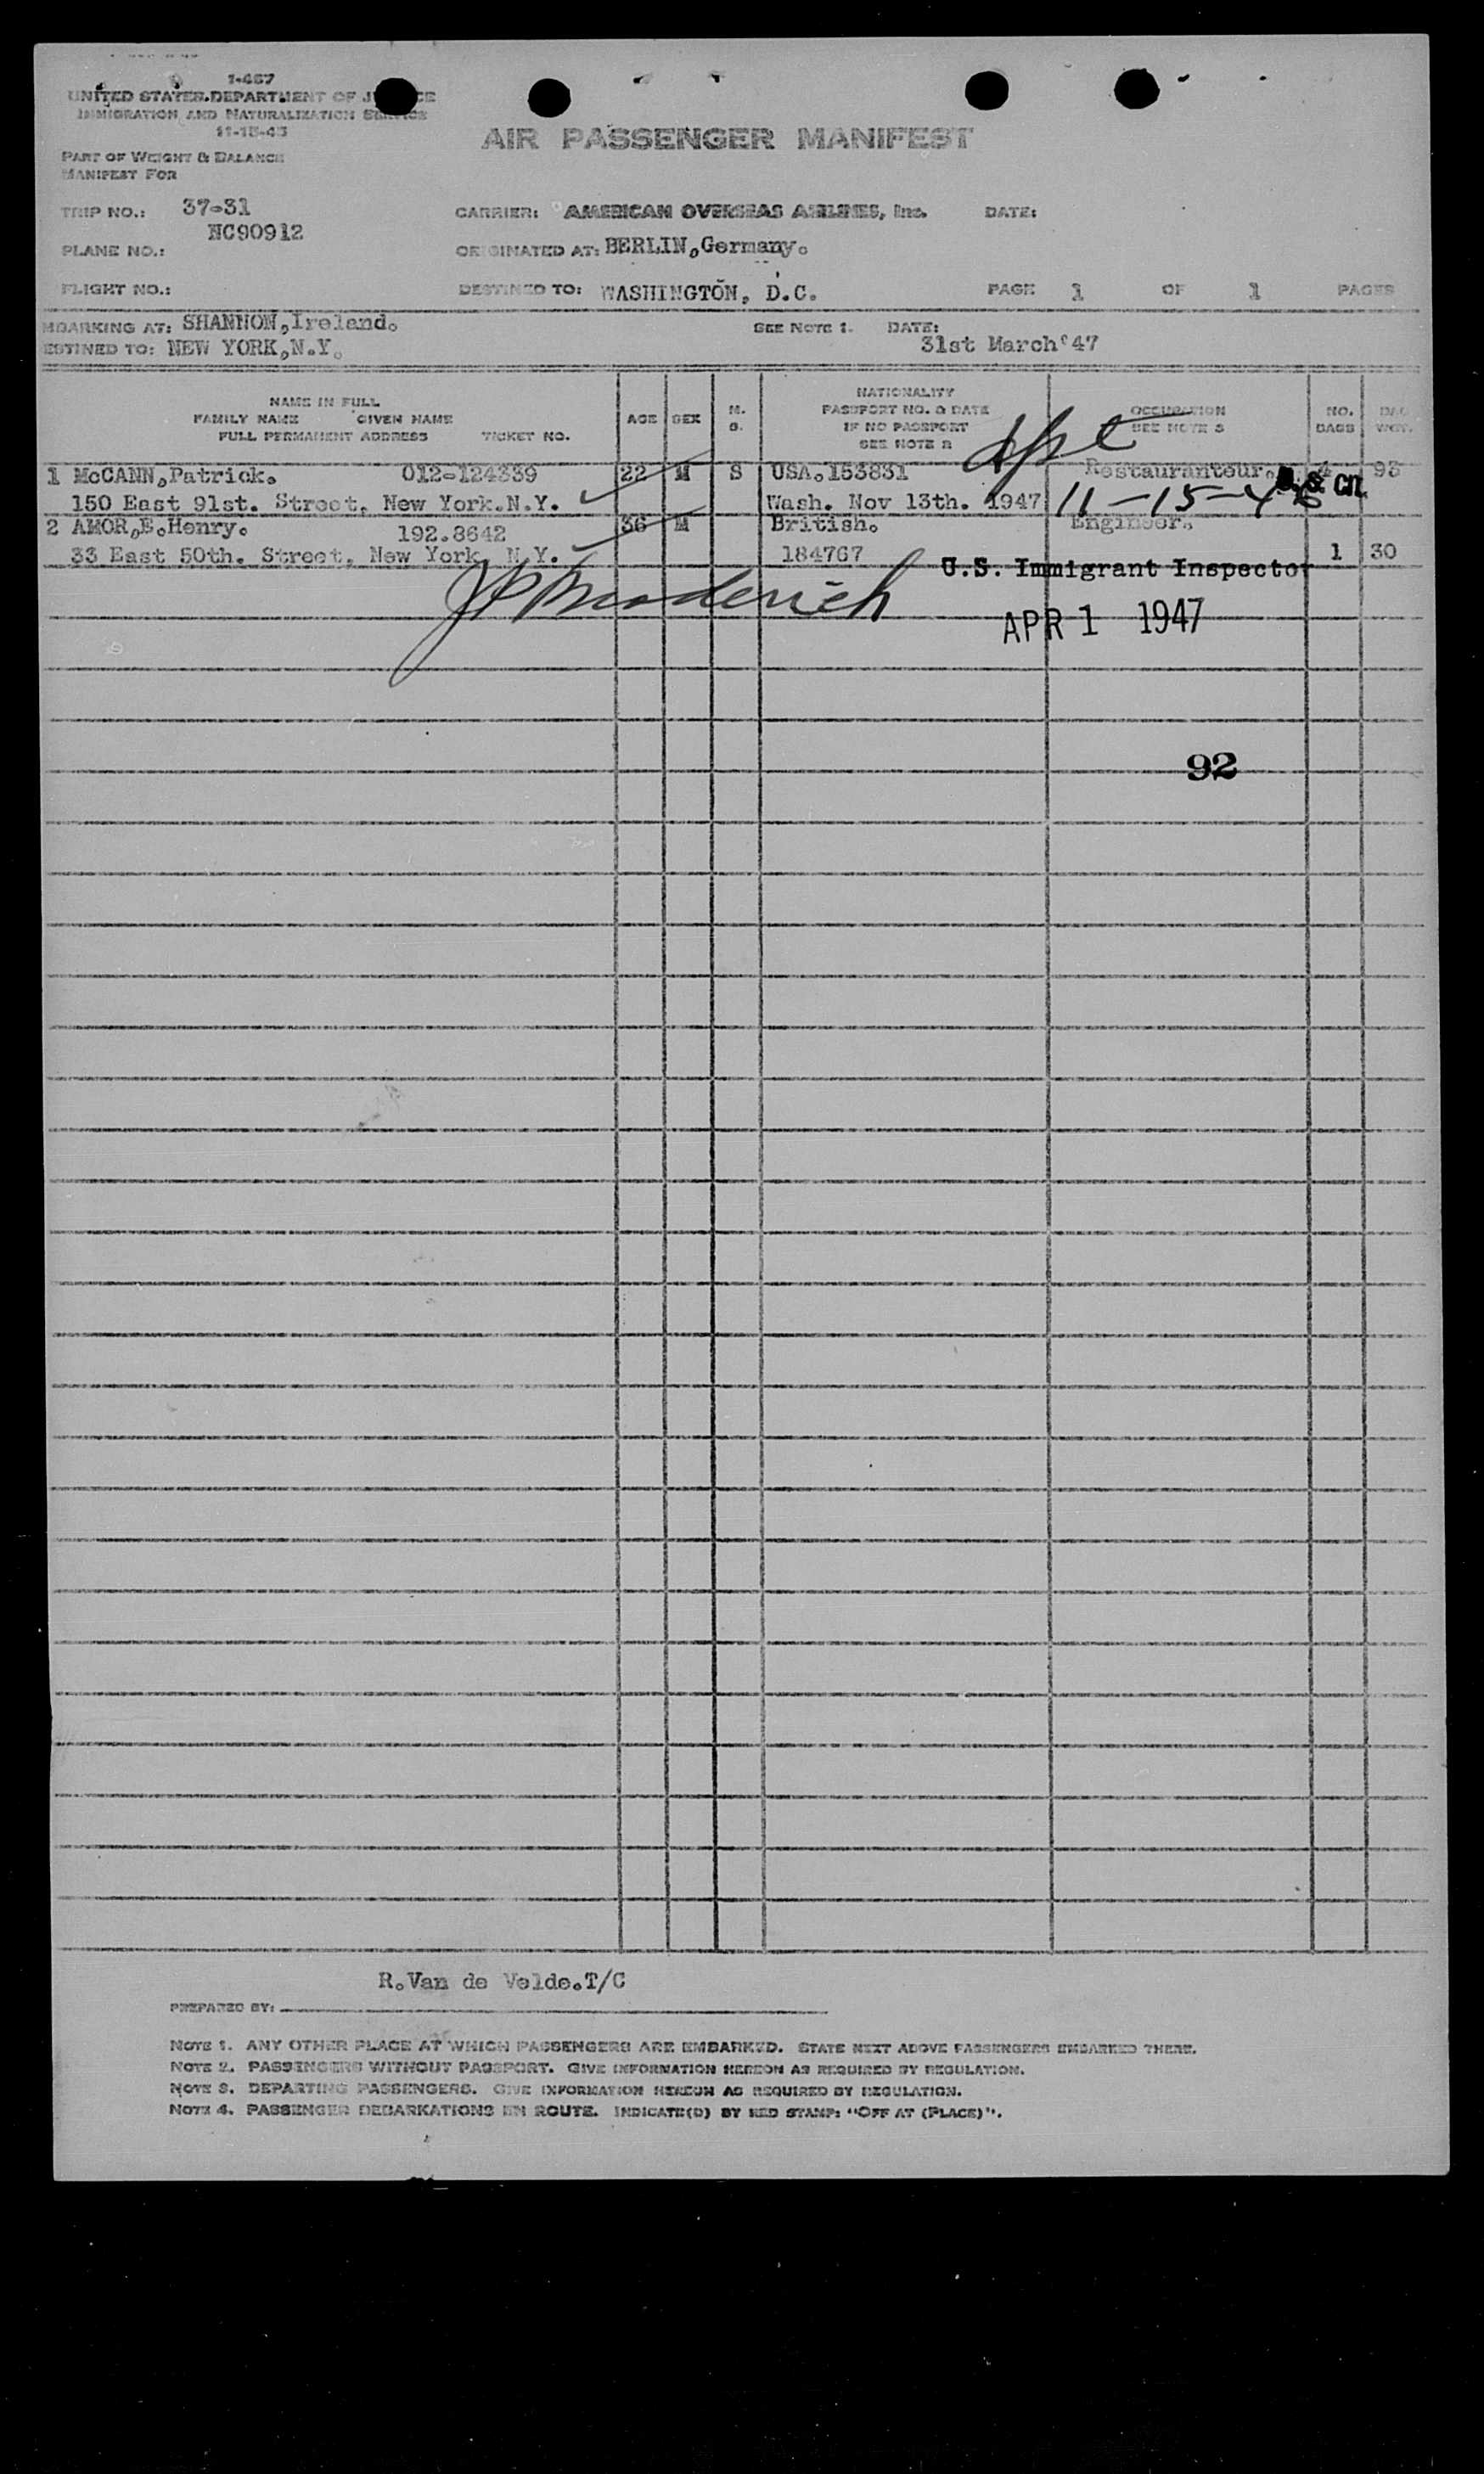 1-467
UNITED STATES DEPARTMENT OF JUSTICE
IMMIGRATION AND NATURALIZATION SERVICE
11-15-45
AIR PASSENGER MANIFEST
PART OF WEIGHT & BALANCE
MANIFEST FOR
TRIP NO.: 37-31 CARRIER: AMERICAN OVERSEAS AIRLINES, Inc. DATE:
PLANE NO.: NC90912 ORIGINATED AT: BERLIN,Germany.
FLIGHT NO.: DESTINED TO: WASHINGTON, D.C. PAGE 1 OF 1 PAGES
MBARKING AT: SHANNON,Ireland. SEE NOTE 1. DATE:
ESTINED TO: NEW YORK,N.Y. 31st March'47
NAME IN FULL
FAMILY NAME GIVEN NAME
FULL PERMANENT ADDRESS TICKET NO.
AGE SEX M. S.
NATIONALITY
PASSPORT NO. & DATE
IF NO PASSPORT
SEE NOTE 2
OCCUPATION
SEE NOTE 3
NO. BAGS
BAG. WGT.
1 McCANN,Patrick. 012-124339 22 M S USA.153831 Restauranteur. 4 93
150 East 91st. Street, New York.N.Y. Wash. Nov 13th. 1947 11-15-46 U.S. Cit.
2 AMOR,E.Henry. 192.8642 36 M British. Engineer.
33 East 50th. Street, New York, N.Y. 184767 1 30
U.S. Immigrant Inspector
APR 1 1947
92
R.Van de Velde.T/C
PREPARED BY:
NOTE 1. ANY OTHER PLACE AT WHICH PASSENGERS ARE EMBARKED. STATE NEXT ABOVE PASSENGERS EMBARKED THERE.
NOTE 2. PASSENGERS WITHOUT PASSPORT. GIVE INFORMATION HEREON AS REQUIRED BY REGULATION.
NOTE 3. DEPARTING PASSENGERS. GIVE INFORMATION HEREON AS REQUIRED BY REGULATION.
NOTE 4. PASSENGER DEBARKATIONS EN ROUTE. INDICATE(D) BY RED STAMP: "OFF AT (PLACE)".